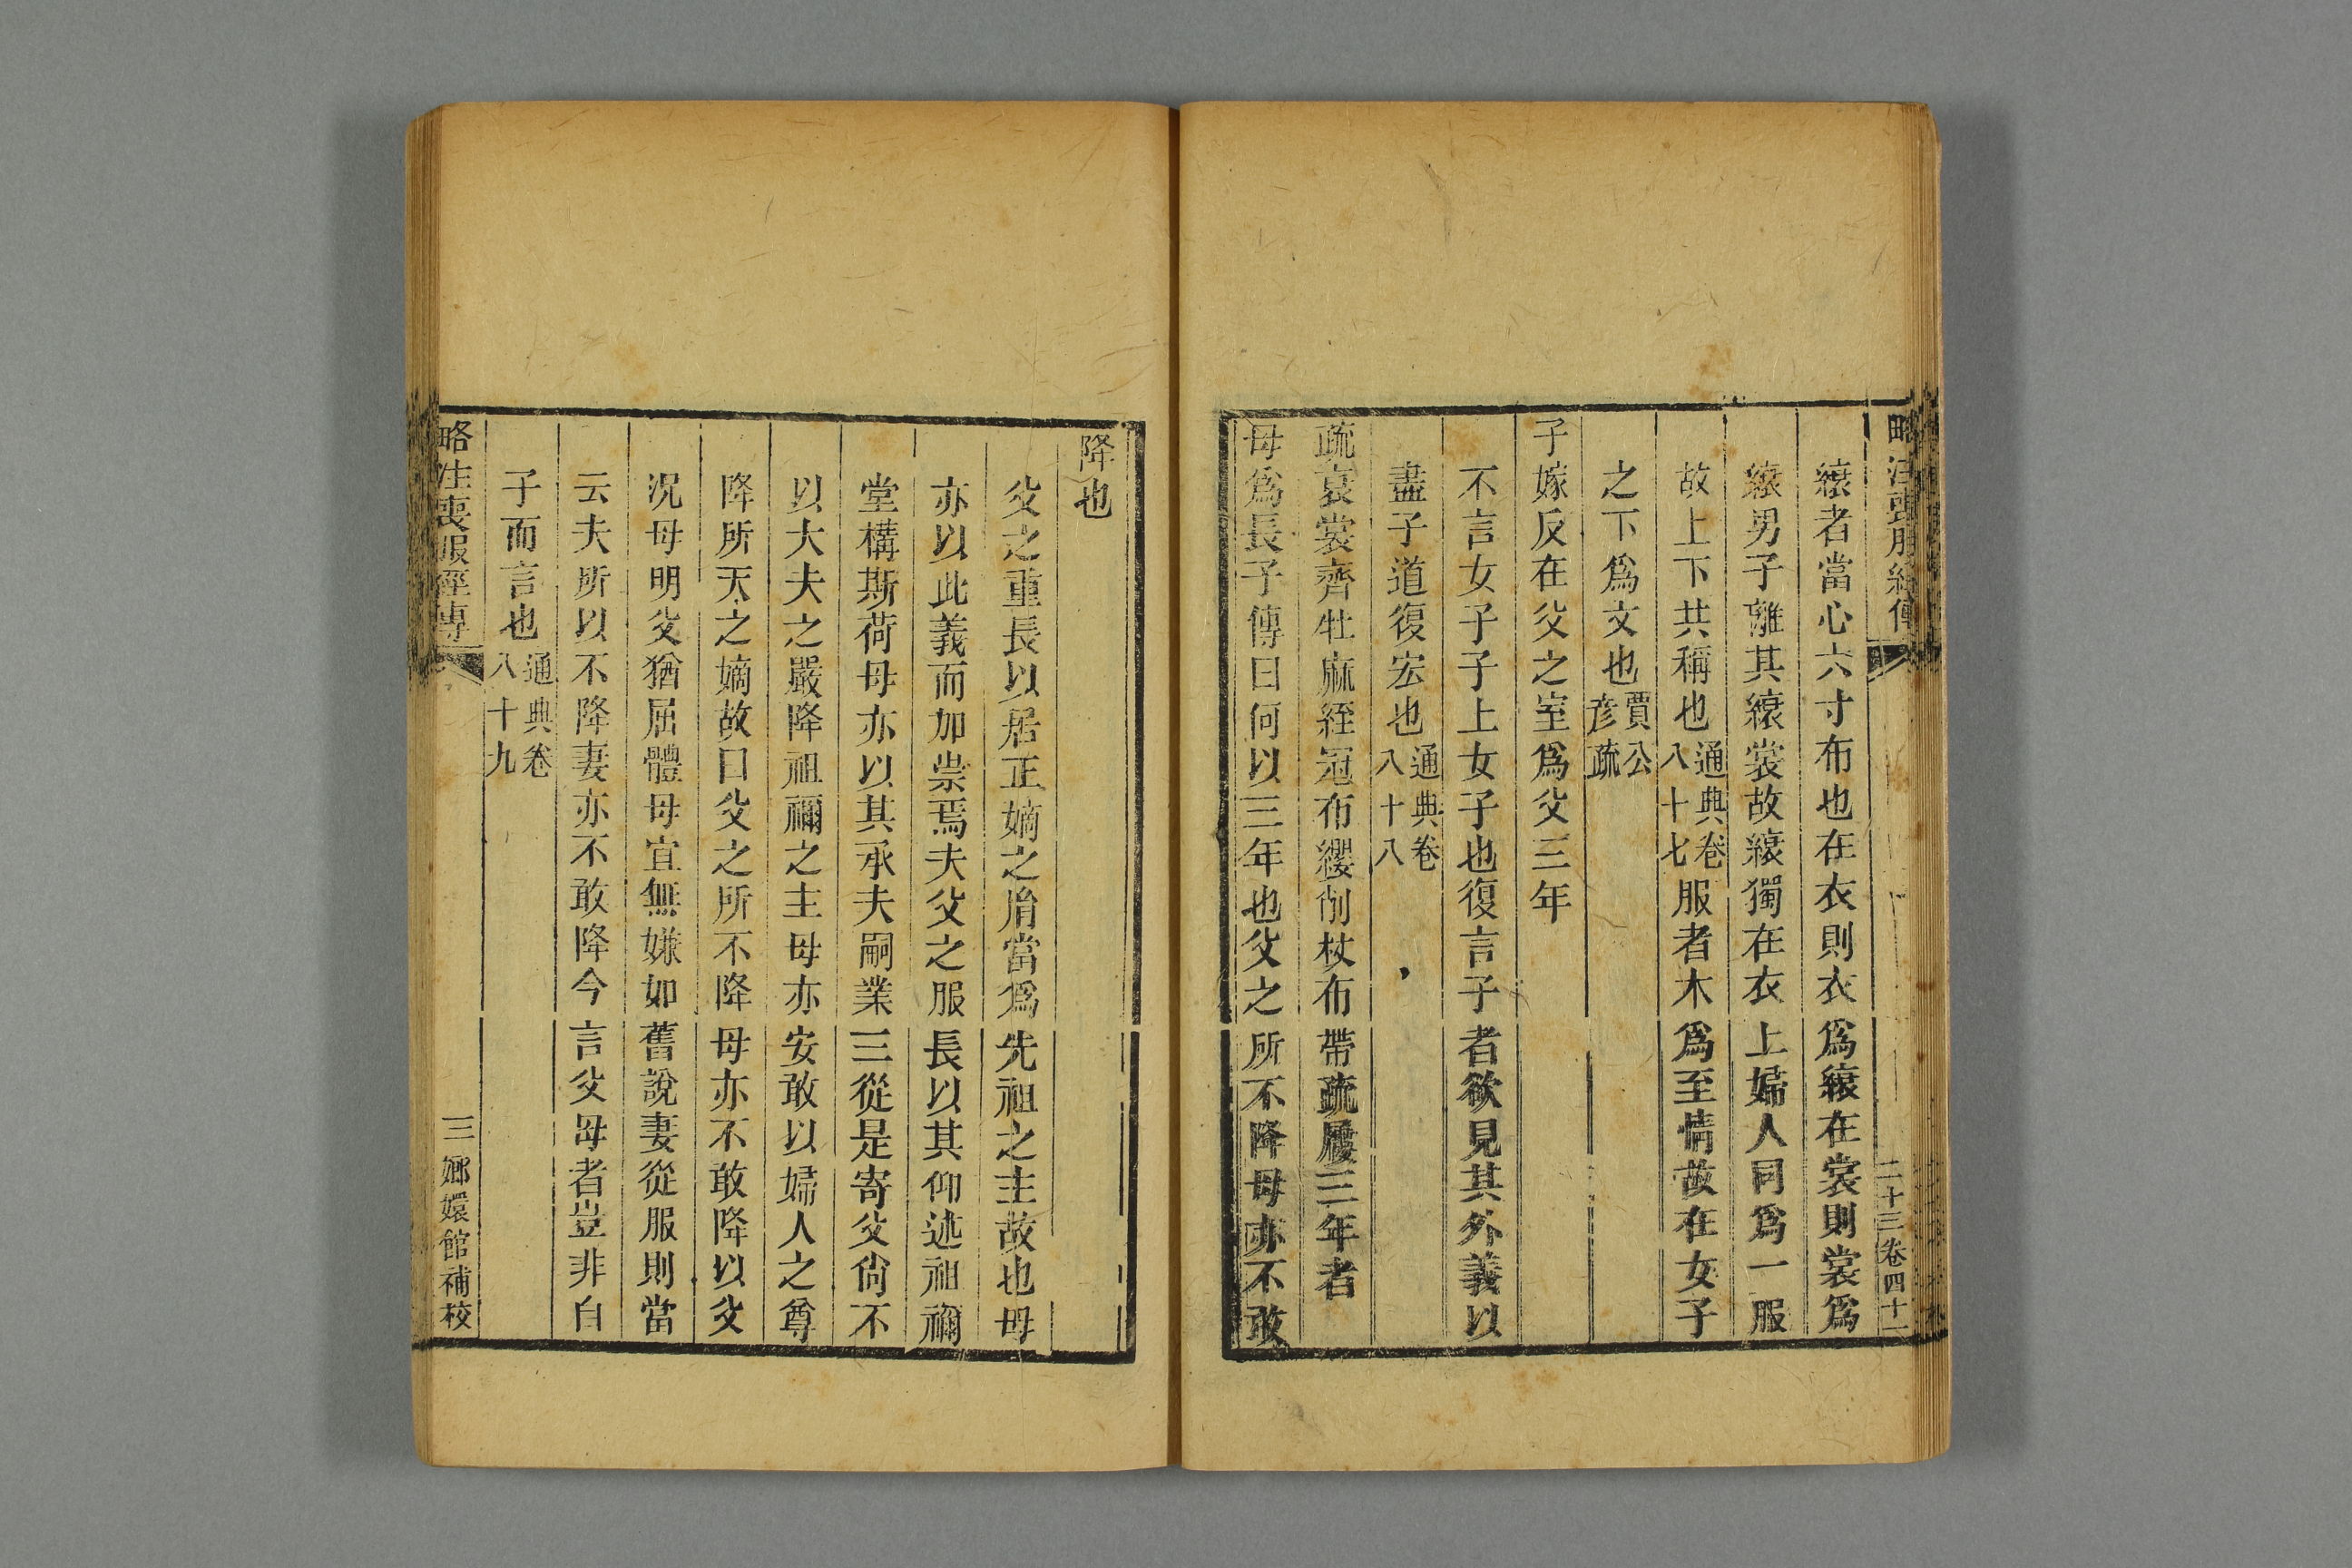 略注喪服經傳
二十三卷四十一
縗者當心六寸布也在衣則衣爲縗在裳則裳爲
縗男子離其縗裳故縗獨在衣上婦人同爲一服
故上下共稱也通典卷八十七服者木爲至情故在女子
之下爲文也賈公彦疏
子嫁反在父之室爲父三年
不言女子子上女子也復言子者欲見其外義以
盡子道復宏也通典卷八十八
疏衰裳齊牡麻絰冠布纓削杖布帶疏屨三年者
母爲長子傳曰何以三年也父之所不降母亦不敢
降也
父之重長以居正嫡之胤當爲先祖之主故也母
亦以此義而加崇焉夫父之服長以其仰述祖禰
堂構斯荷母亦以其承夫嗣業三從是寄父尙不
以大夫之嚴降祖禰之主母亦安敢以婦人之尊
降所天之嫡故曰父之所不降母亦不敢降以父
況母明父猶屈體母宜無嫌如舊說妻從服則當
云夫所以不降妻亦不敢降今言父母者豈非自
子而言也通典卷八十九
略注喪服經傳
三
嫏嬛館補校